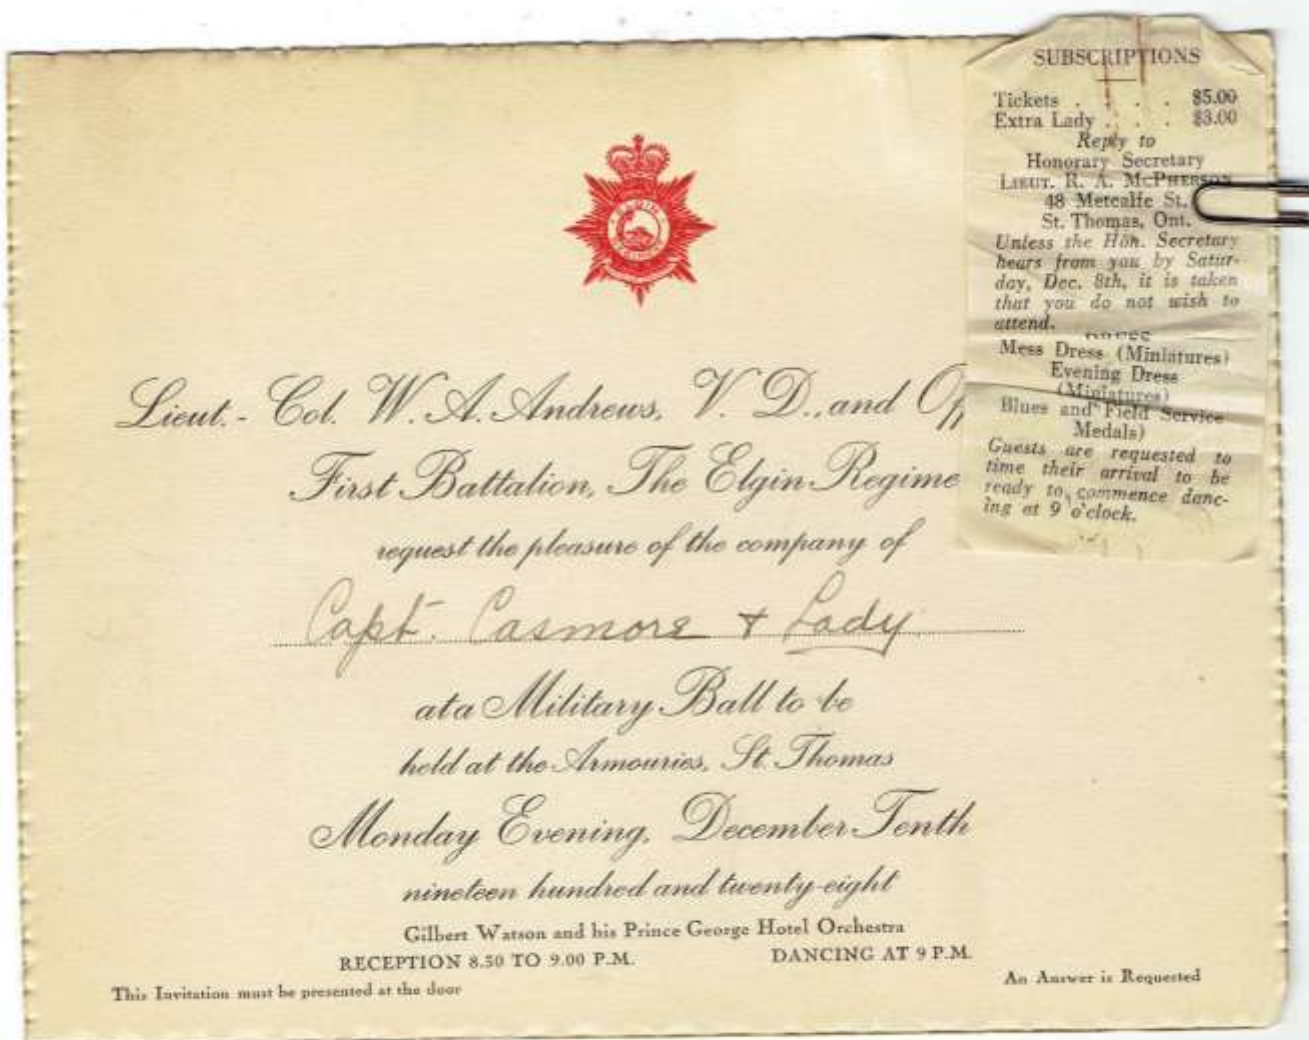 SUBSCRIPTIONS
Tickets . . . . $5.00
Extra Lady . . . $3.00
Reply to
Honorary Secretary
LIEUT. R. A. McPHERSON
48 Metcalfe St.
St. Thomas, Ont.
Unless the Hon. Secretary
hears from you by Satur-
day, Dec. 8th, it is taken
that you do not wish to
attend.
Mess Dress (Miniatures)
Evening Dress
(Miniatures)
Blues and Field Service
Medals)
Guests are requested to
time their arrival to be
ready to commence danc-
ing at 9 o'clock.
ELGIN
REGIMENT
Lieut.-Col. W. A. Andrews, V. D., and Off
First Battalion, The Elgin Regime
request the pleasure of the company of
Capt. Casmore + Lady
at a Military Ball to be
held at the Armouries, St. Thomas
Monday Evening, December Tenth
nineteen hundred and twenty-eight
Gilbert Watson and his Prince George Hotel Orchestra
RECEPTION 8.30 TO 9.00 P.M. DANCING AT 9 P.M.
This Invitation must be presented at the door An Answer is Requested